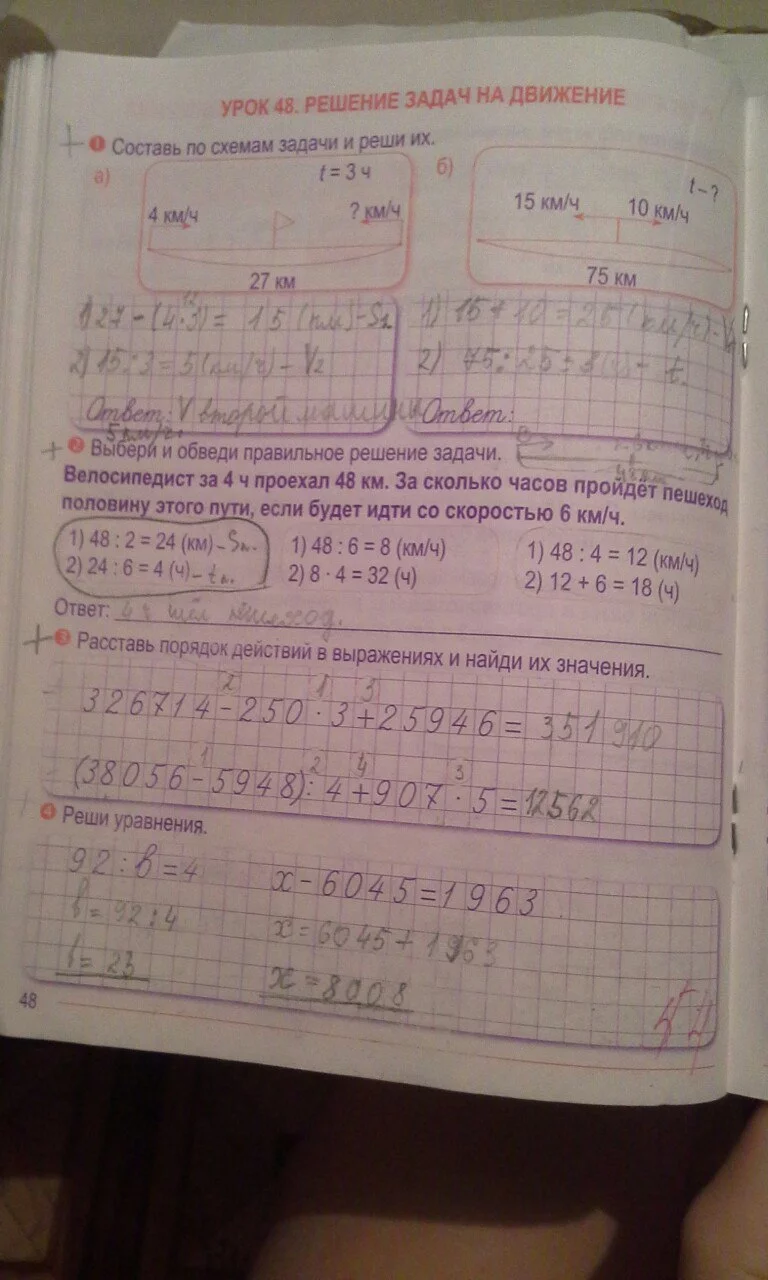 УРОК 48. РЕШЕНИЕ ЗАДАЧ НА ДВИЖЕНИЕ
1 Составь по схемам задачи и реши их.
а) t = 3 ч
4 км/ч ? км/ч
27 км
б) t – ?
15 км/ч 10 км/ч
75 км
1) 27 – (4·3) = 15 (км) – S2
12
2) 15 : 3 = 5 (км/ч) – V2
Ответ: V второй машины
5 км/ч.
1) 15 + 10 = 25 (км/ч) –
2) 75 : 25 = 3 (ч) – t.
Ответ:
2 Выбери и обведи правильное решение задачи.
Велосипедист за 4 ч проехал 48 км. За сколько часов пройдёт пешеход
половину этого пути, если будет идти со скоростью 6 км/ч.
1) 48 : 2 = 24 (км) – Sп.
2) 24 : 6 = 4 (ч) – tп.
1) 48 : 6 = 8 (км/ч)
2) 8 · 4 = 32 (ч)
1) 48 : 4 = 12 (км/ч)
2) 12 + 6 = 18 (ч)
Ответ: 4 ч шёл пешеход.
3 Расставь порядок действий в выражениях и найди их значения.
2 1 3
326714 – 250 · 3 + 25946 = 351910
1 2 4 3
(38056 – 5948) : 4 + 907 · 5 = 12562
4 Реши уравнения.
92 : в = 4
в = 92 : 4
в = 23
х – 6045 = 1963
х = 6045 + 1963
х = 8008
48